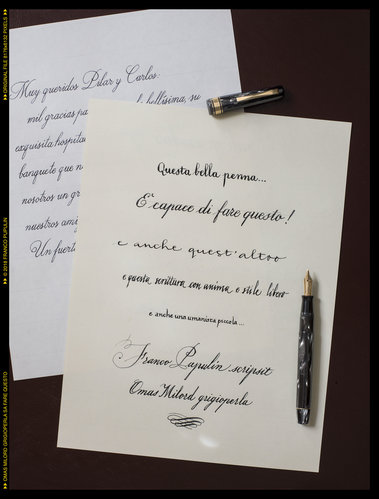 Muy queridos Pilar y Carlos:
mil gracias pa
bellísima, su
exquisita hospita
banquete que n
nosotros un gr
nuestros ami
Un fuert
Questa bella penna...
È capace di fare questo!
e anche quest'altro
e questa scrittura con anima e stile libero
e anche una umanista piccola...
Franco Pupulin scripsit
Omas Milord grigioperla
ORIGINAL FILE 8176x6132 PIXELS
© 2018 FRANCO PUPULIN
OMAS MILORD GRIGIOPERLA SA FARE QUESTO